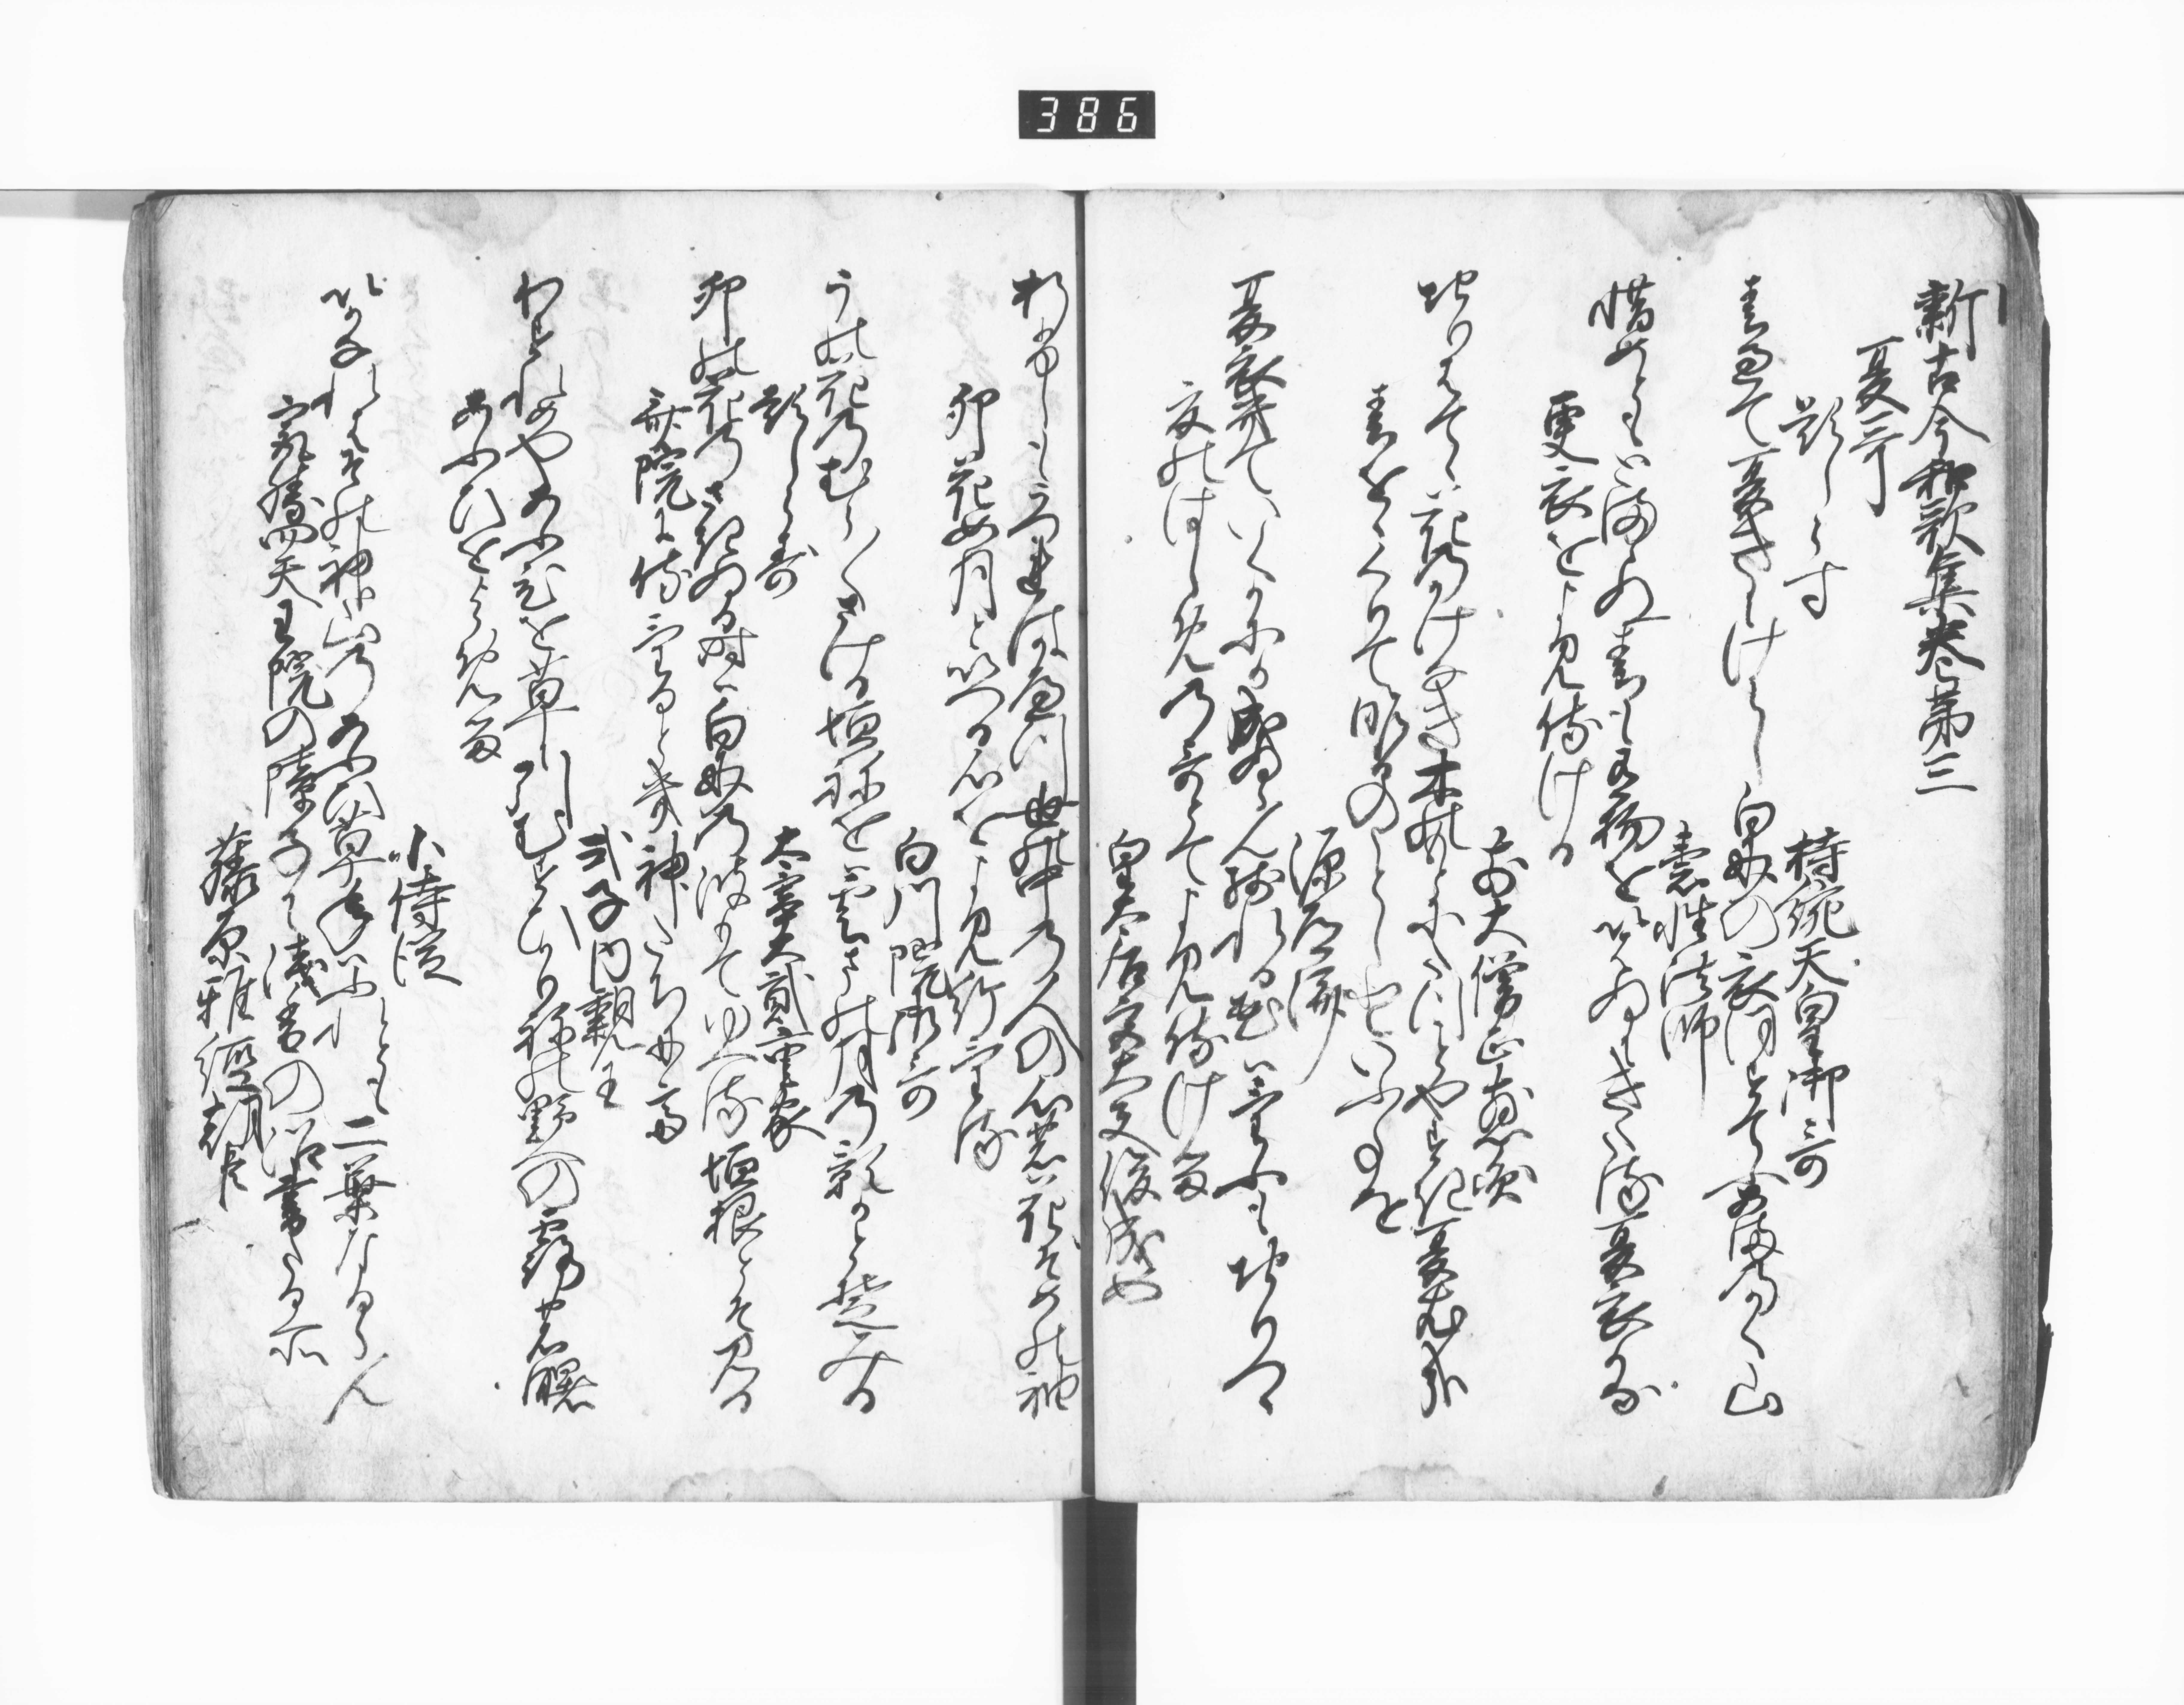 386
新古今和歌集巻第三
夏哥
題しらす
持統天皇御哥
春過て夏きにけらし白妙の衣ほすてふあまのかく山
素性法師
惜めともとまらぬ春も有物をいはぬにきたる夏衣かな
更衣をよみ侍ける
前大僧正慈円
ちりはてゝ花のかけなき木本にたつことやすき夏衣
春をゝくりて昨日のことしといふ事を
源道済
夏衣きていくかにか成ぬらん残れる花はけふもちりつゝ
夏のはしめの哥とてよみ侍ける
皇太后宮大夫俊成女
折ふしもうつれはかへつ世中の人の心の花そめの袖
卯花如月といへる心をよませ給ける
白河院御哥
うの花のむら〱さける垣ねをは雲まの月の影かとそみる
題しらす
大宰大貳重家
卯の花のさきぬる時は白妙の波もてゆへる垣根とそみる
斎院に侍ける時神たちにて
式子内親王
わすれめやあふひを草に引むすひかりねの野への露の曙
あふひをよめる
小侍従
いかなれはそのかみ山のあふひ草年はふれとも二葉なるらん
最勝四天王院の障子に浅香の沼書たる所
藤原雅経朝臣